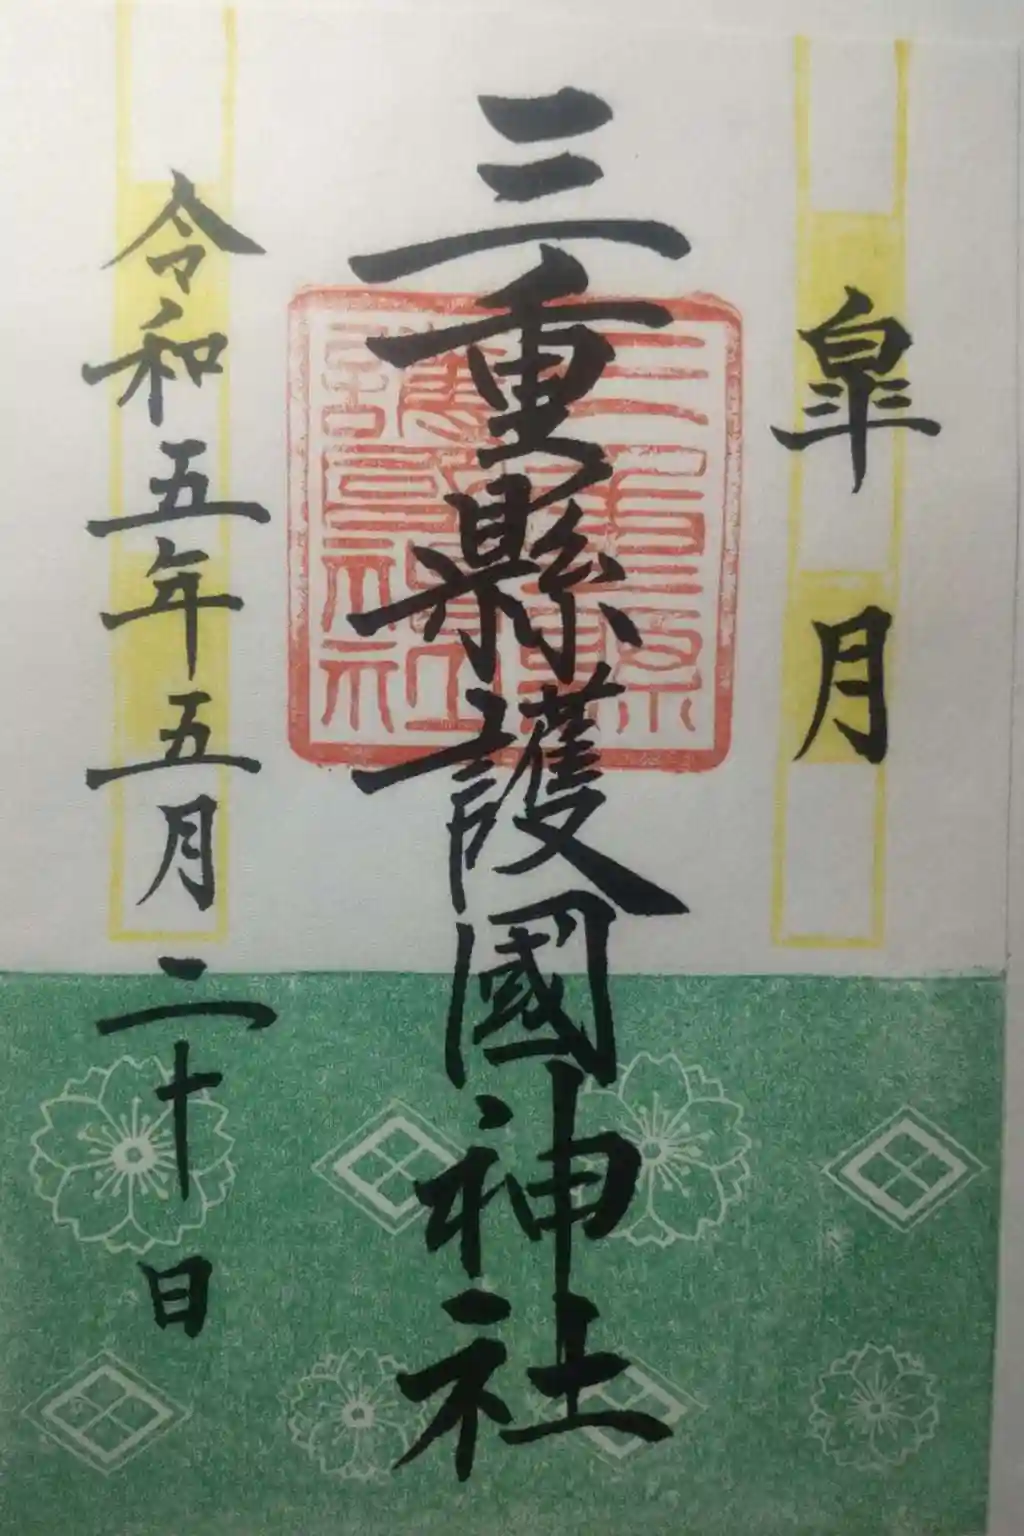 皐月
三重縣護國神社
三重縣護國神社
令和五年五月二十日